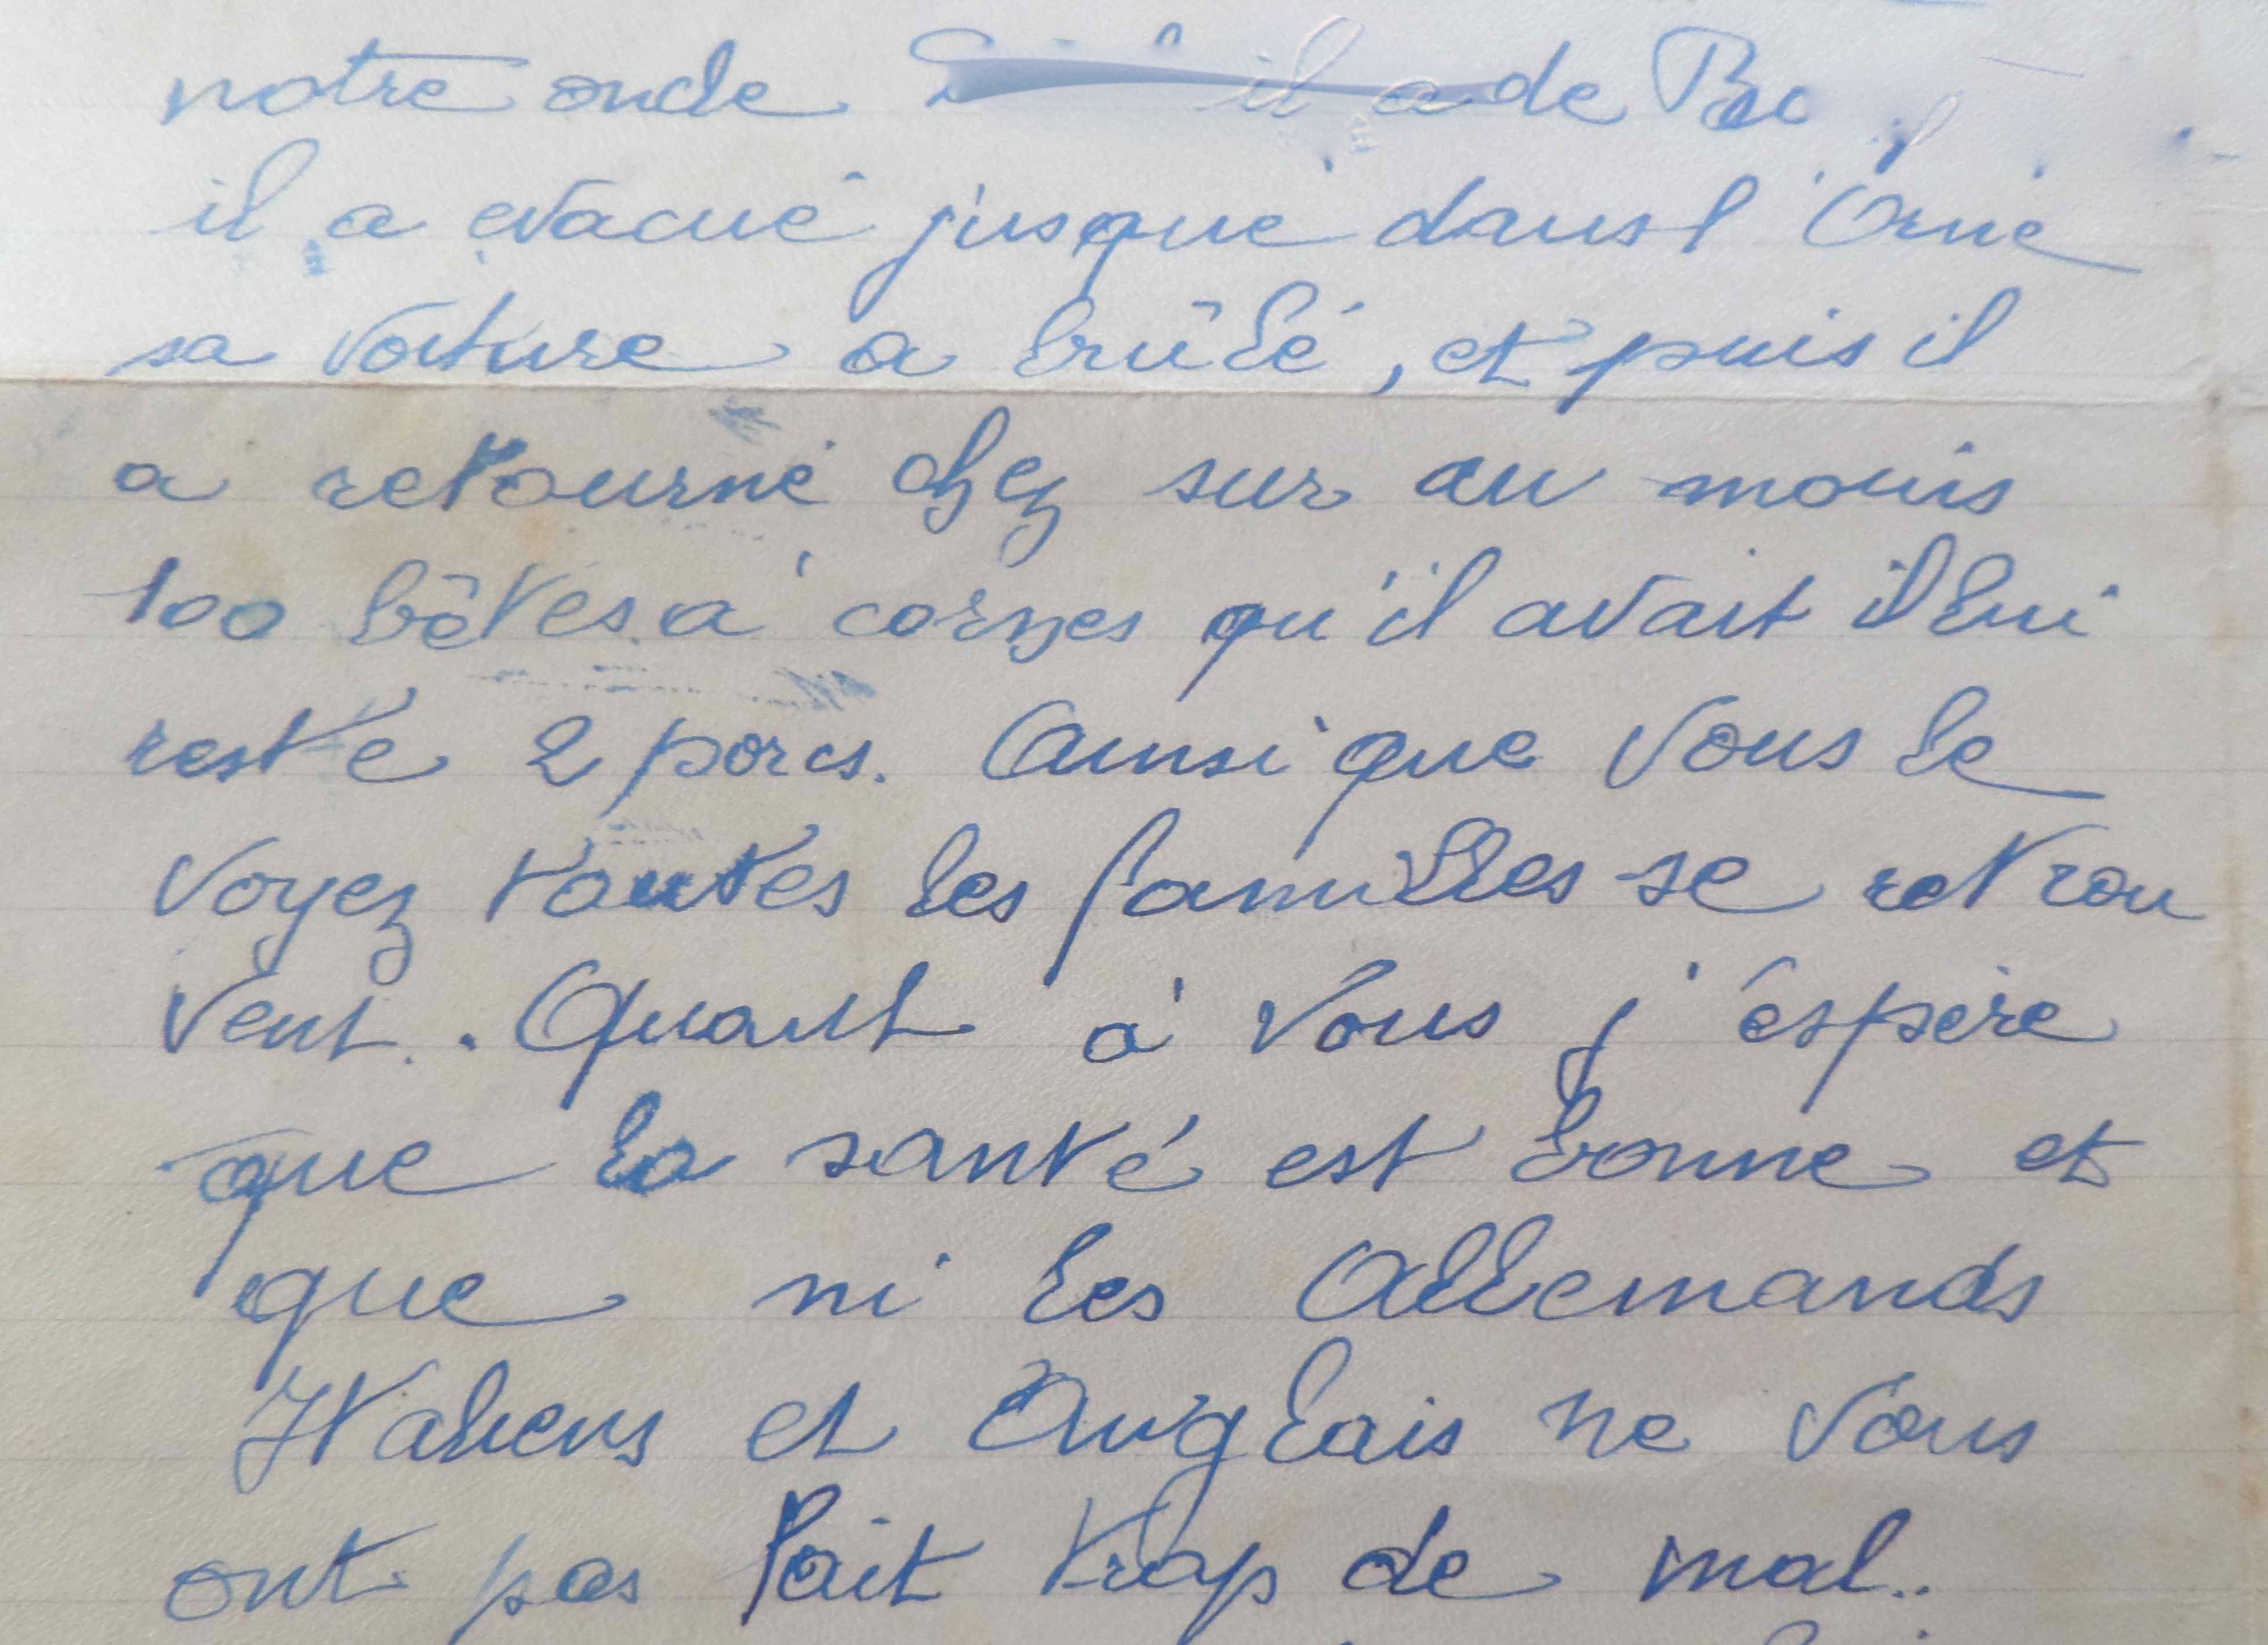 notre oncle de
il a evacué jusque dans l'Orne
sa voiture a brûlé, et puis il
a retourné chez sur au mouis
100 bêtes à cornes qu'il avait il lui
reste 2 porcs. Ainsi que vous le
voyez toutes les familles se retrou
vent.. Quant à vous j'éspère
que la santé est bonne et
que ni les Allemands
Italiens et Anglais ne vous
ont pas fait trop de mal..